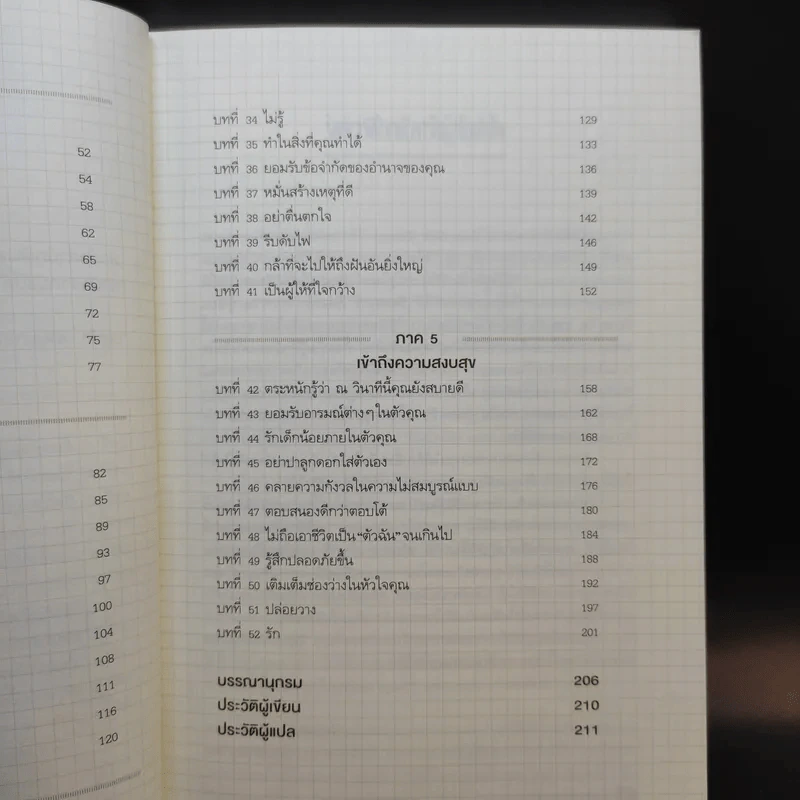 52
54
58
62
65
69
72
75
77
82
85
89
93
97
100
104
108
111
116
120
บทที่ 34 ไม่รู้ 129
บทที่ 35 ทำในสิ่งที่คุณทำได้ 133
บทที่ 36 ยอมรับข้อจำกัดของอำนาจของคุณ 136
บทที่ 37 หมั่นสร้างเหตุที่ดี 139
บทที่ 38 อย่าตื่นตกใจ 142
บทที่ 39 รีบดับไฟ 146
บทที่ 40 กล้าที่จะไปให้ถึงฝันอันยิ่งใหญ่ 149
บทที่ 41 เป็นผู้ให้ที่ใจกว้าง 152
ภาค 5
เข้าถึงความสงบสุข
บทที่ 42 ตระหนักรู้ว่า ณ วินาทีนี้คุณยังสบายดี 158
บทที่ 43 ยอมรับอารมณ์ต่างๆ ในตัวคุณ 162
บทที่ 44 รักเด็กน้อยภายในตัวคุณ 168
บทที่ 45 อย่าปาลูกดอกใส่ตัวเอง 172
บทที่ 46 คลายความกังวลในความไม่สมบูรณ์แบบ 176
บทที่ 47 ตอบสนองดีกว่าตอบโต้ 180
บทที่ 48 ไม่ถือเอาชีวิตเป็น “ตัวฉัน” จนเกินไป 184
บทที่ 49 รู้สึกปลอดภัยขึ้น 188
บทที่ 50 เติมเต็มช่องว่างในหัวใจคุณ 192
บทที่ 51 ปล่อยวาง 197
บทที่ 52 รัก 201
บรรณานุกรม 206
ประวัติผู้เขียน 210
ประวัติผู้แปล 211